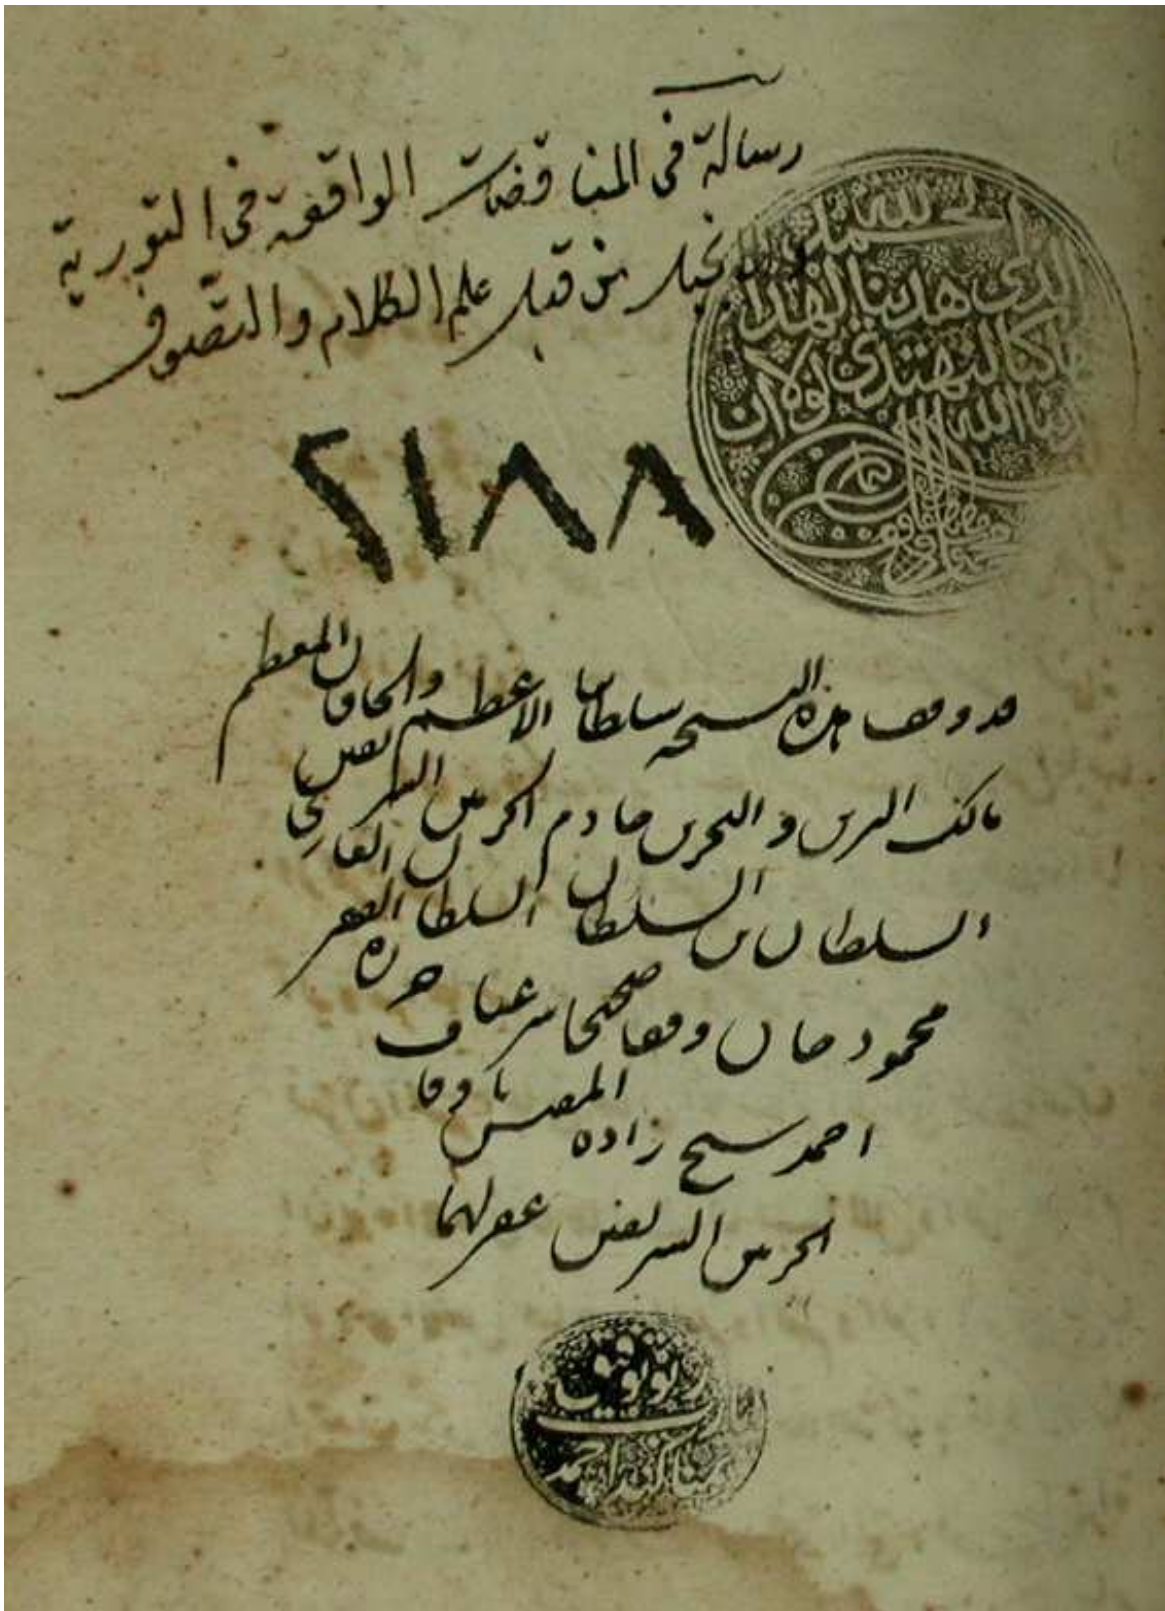 رسالة فى المناقضات الواقعة فى التورية
والانجيل من قبل علم الكلام والتصوف
الحمد لله
الذى هدينا لهذا
وما كنا لنهتدى لولا ان
هدينا الله
٢١٨٨
قد وقف هذه النسخه سلطاننا الاعظم والخاقان المعظم
مالك البرين والبحرين خادم الحرمين الشريفين
السلطان بن السلطان السلطان الغازى
محمود خان وقفا صحيحا شرعيا حرره الفقير
احمد شيخ زاده المفتش باوقاف
الحرمين الشريفين غفر لهما
احمد